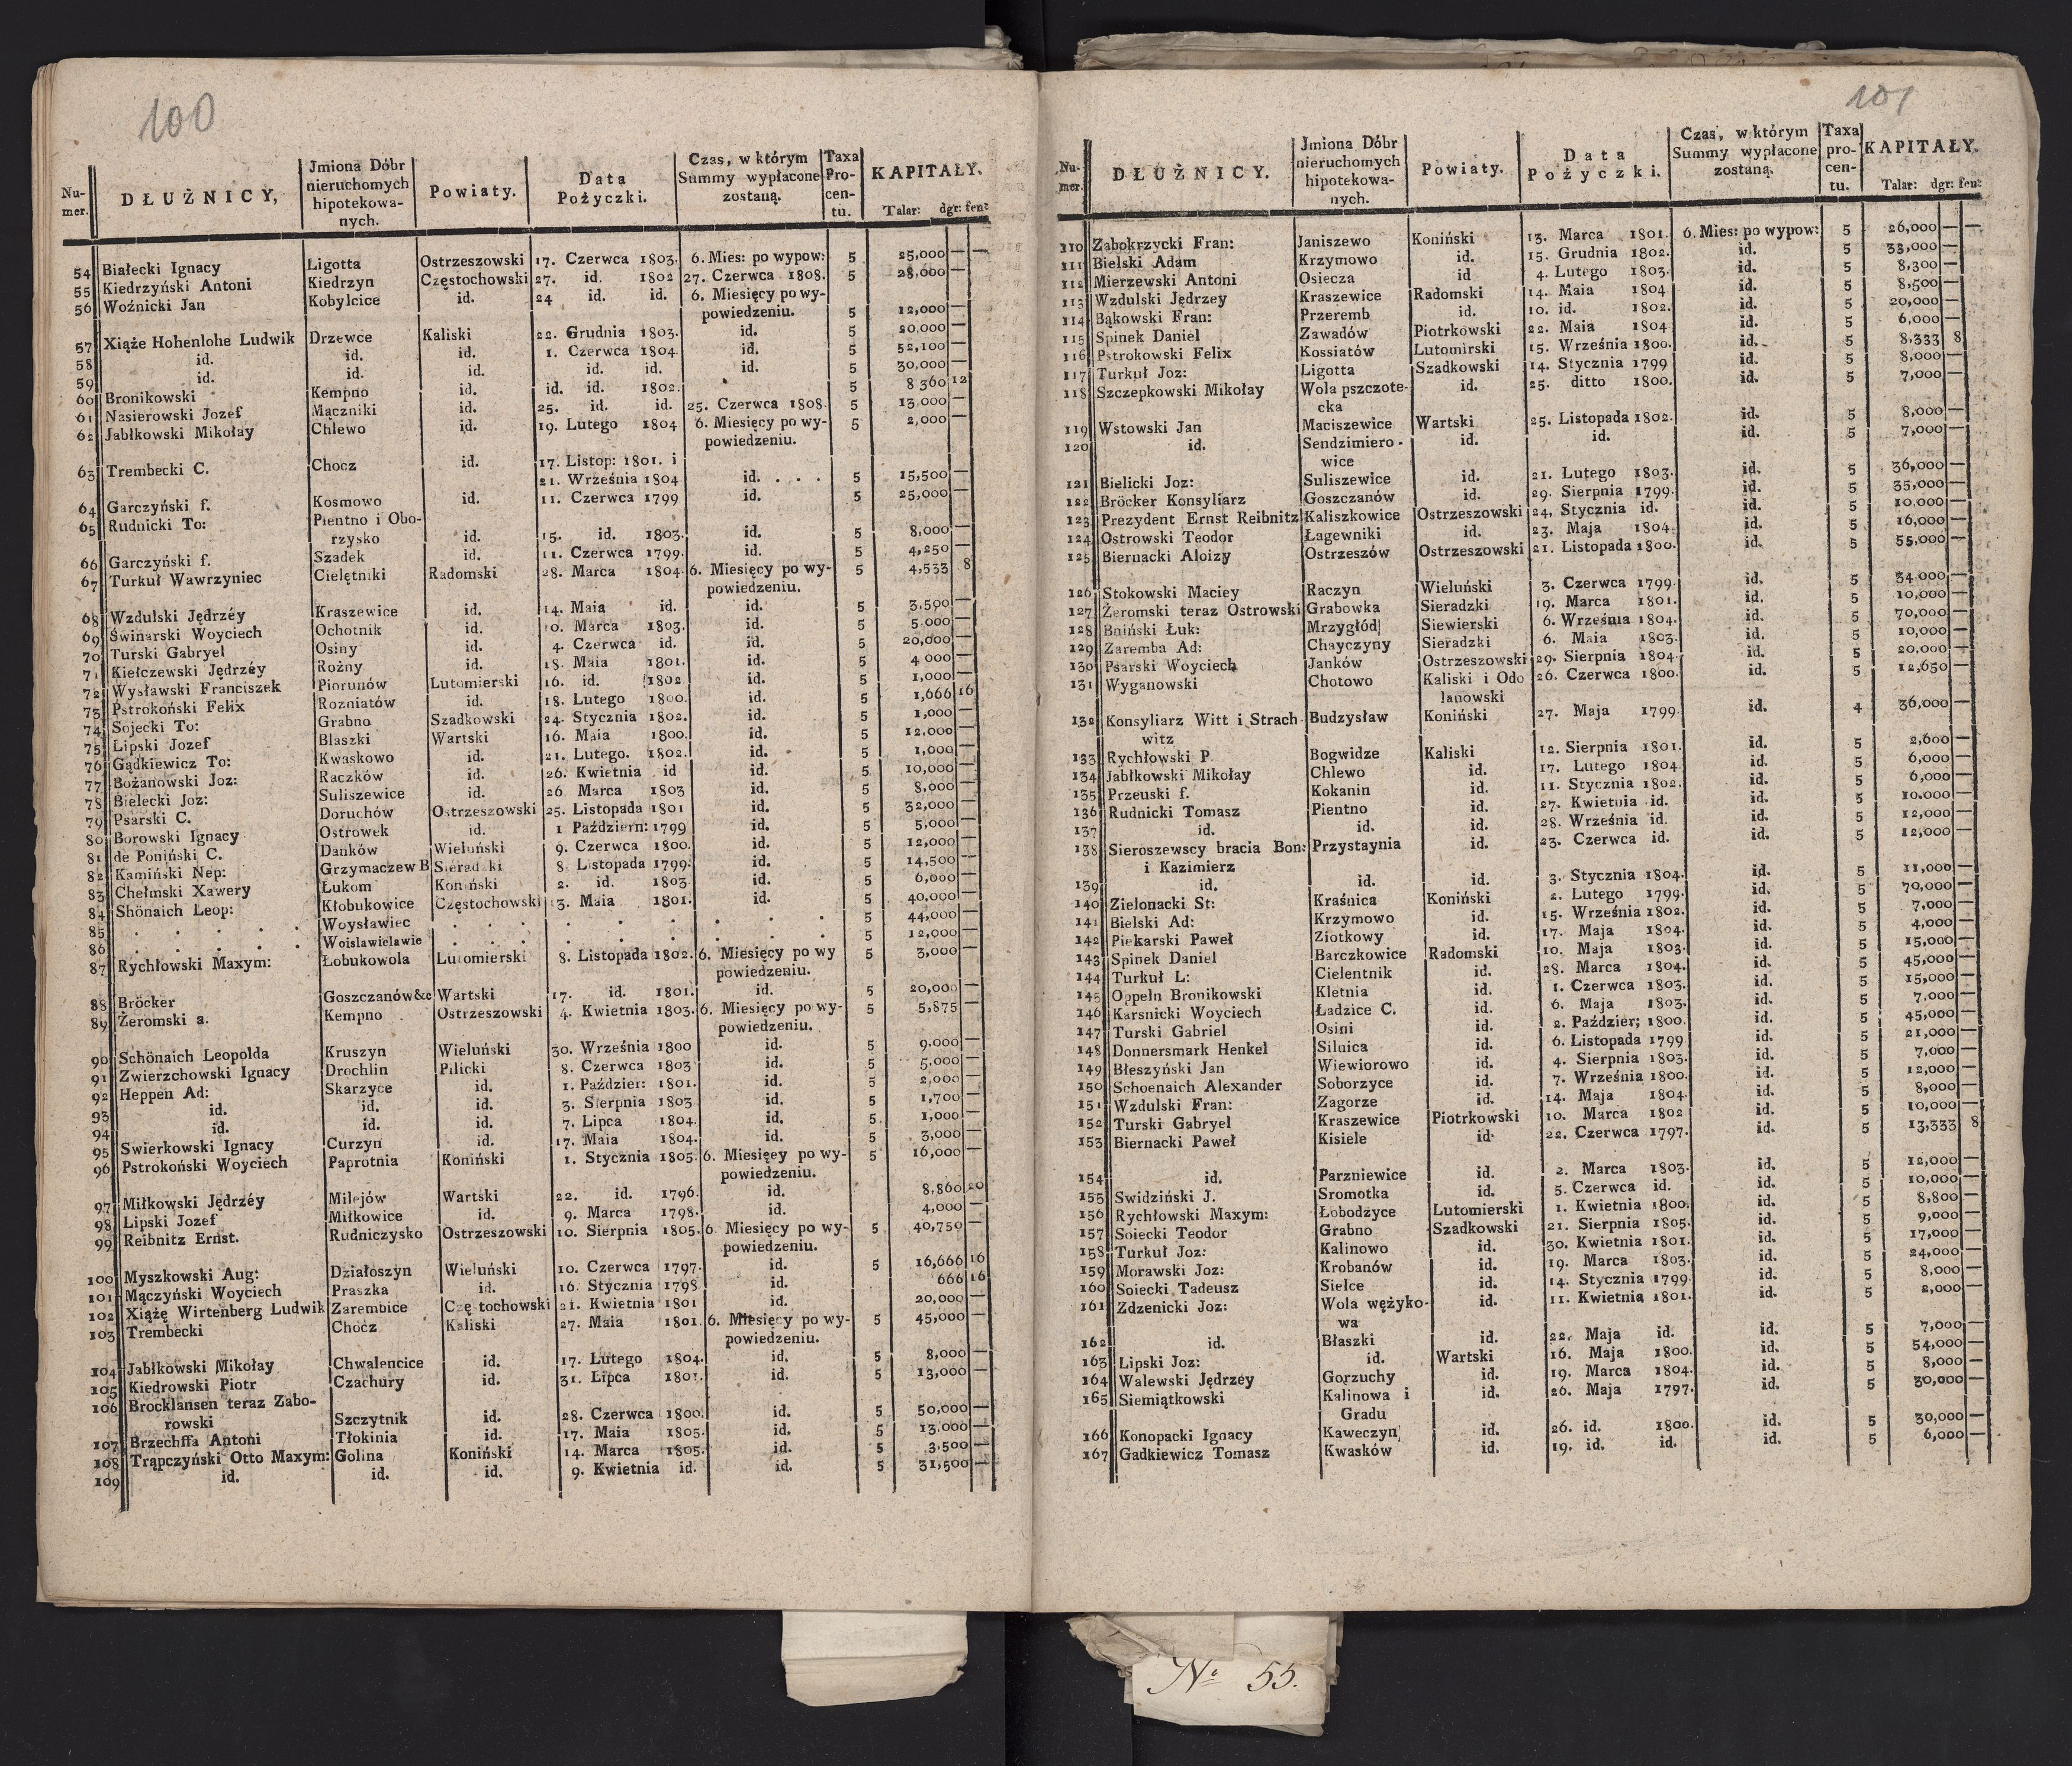 100
Nu-
mer. DŁUŻNICY, Jmiona Dóbr nieruchomych hipotekowa-nych. Powiaty. Data Pożyczki. Czas, w którym Summy wypłacone zostaną. Taxa Pro-cen-tu. KAPITAŁY. Talar: dgr: fen:
54 Białecki Ignacy Ligotta Ostrzeszowski 17. Czerwca 1803. 6. Mies: po wypow: 5 25,000 — —
55 Kiedrzyński Antoni Kiedrzyn Częstochowski 27. id. 1802 27. Czerwca 1808. 5 28,000 —
56 Woźnicki Jan Kobylcice id. 24 id. id. 6. Miesięcy po wy-
powiedzeniu. 5 12,000 —
57 Xiąże Hohenlohe Ludwik Drzewce Kaliski 22. Grudnia 1803. id. 5 20,000 —
58 id. id. id. 1. Czerwca 1804. id. 5 52,100 —
59 id. id. id. id. id. id. 5 30,000 —
60 Bronikowski Kempno id. id. id. 1802. 5 8 360 12
61 Nasierowski Jozef Mączniki id. 25. id. id. 25. Czerwca 1808. 5 13,000 —
62 Jabłkowski Mikołay Chlewo id. 19. Lutego 1804 6. Miesięcy po wy- 5 2,000
powiedzeniu.
63 Trembecki C. Chocz id. 17. Listop: 1801. i
21. Września 1804 id. . . . 5 15,500 —
64 Garczyński f. Kosmowo id. 11. Czerwca 1799 id. 5 25,000 —
65 Rudnicki To: Pientno i Obo-
rzysko id. 15. id. 1803. id. 5 8,000 —
66 Garczyński f. Szadek id. 11. Czerwca 1799. id. 5 4,250 —
67 Turkuł Wawrzyniec Cielętniki Radomski 28. Marca 1804. 6. Miesięcy po wy- 5 4,533 8
powiedzeniu.
68 Wzdulski Jędrzéy Kraszewice id. 14. Maia id. id. 5 3,590 —
69 Świnarski Woyciech Ochotnik id. 0. Marca 1803. id. 5 5.000 —
70 Turski Gabryel Osiny id. 4. Czerwca id. id. 5 20,000 —
71 Kiełczewski Jędrzéy Rożny id. 18. Maia 1801. id. 5 4 000 —
72 Wysławski Franciszek Piorunów Lutomierski 16. id. 1802 id. 5 1,000 —
73 Pstrokoński Felix Rozniatów id. 18. Lutego 1800. id. 5 1,666 16
74 Sojecki To: Grabno Szadkowski 24. Stycznia 1802. id. 5 1,000 —
75 Lipski Jozef Blaszki Wartski 16. Maia 1800. id. 5 12,000 —
76 Gądkiewicz To: Kwaskowo id. 21. Lutego. 1802. id. 5 1,000 —
77 Bożanowski Joz: Raczków id. 26. Kwietnia id id. 5 10,000 —
78 Bielecki Joz: Suliszewice id. 26 Marca 1803 id. 5 8,000 —
79 Psarski C. Doruchów Ostrzeszowski 25. Listopada 1801 id. 5 32,000 —
80 Borowski Ignacy Ostrowek id. 1 Październ: 1799 id. 5 5,000 —
81 de Poniński C. Danków Wieluński 9. Czerwca 1800. id. 5 12,000 —
82 Kamiński Nep: Grzymaczew B Sieradzki 8. Listopada 1799. id. 5 14,500 —
83 Chełmski Xawery Łukom Koniński 2. id. 1803 id. 5 6,000 —
84 Shönaich Leop: Kłobukowice Częstochowski 13. Maia 1801. id. 5 40,000 —
85 . . . . . Woysławiec . . . . . . 5 44,000 —
86 . . . . . Woislawielawie . . . . . . 5 12,000 —
87 Rychłowski Maxym: Łobukowola Lutomierski 8. Listopada 1802. 6. Miesięcy po wy 5 3,000 —
powiedzeniu.
88 Bröcker Goszczanów&c Wartski 17. id. 1801. id. 5 20,000 —
89 Żeromski a. Kempno Ostrzeszowski 4. Kwietnia 1803. 6. Miesięcy po wy- 5 5,875 —
powiedzeniu.
90 Schönaich Leopolda Kruszyn Wieluński 30. Września 1800 id. 5 9,000 —
91 Zwierzchowski Ignacy Drochlin Pilicki 8. Czerwca 1803 id. 5 5.000 —
92 Heppen Ad: Skarzyce id. 1. Paździer: 1801. id. 5 2,000 —
93 id. id. id. 3. Sierpnia 1803 id. 5 1,700 —
94 id. id. id. 7. Lipca 1804. id. 5 1,000 —
95 Swierkowski Ignacy Curzyn id. 17. Maia 1804. id. 5 3,000 —
96 Pstrokoński Woyciech Paprotnia Koniński 1. Stycznia 1805. 6. Miesięey po wy- 5 16,000 —
powiedzeniu.
97 Miłkowski Jędrzéy Milejów Wartski 22. id. 1796. id. 8,860 20
98 Lipski Jozef Miłkowice id. 9. Marca 1798. id. 4,000 —
99 Reibnitz Ernst. Rudniczysko Ostrzeszowski 10. Sierpnia 1805. 6. Miesięcy po wy- 5 40,750 —
powiedzeniu.
100 Myszkowski Aug: Działoszyn Wieluński 10. Czerwca 1797. id. 5 16,666 16
101 Mączyński Woyciech Praszka id. 16. Stycznia 1798 id. 666 16
102 Xiążę Wirtenberg Ludwik Zarembice Czę tochowski 21. Kwietnia 1801 id. 20,000 —
103 Trembecki Chocz Kaliski 27. Maia 1801. 6. Miesięcy po wy- 5 45,000 —
powiedzeniu.
104 Jabłkowski Mikołay Chwalencice id. 17. Lutego 1804. id. 5 8,000 —
105 Kiedrowski Piotr Czachury id. 31. Lipca 1801. id. 5 13,000 —
106 Brocklansen teraz Zabo-
rowski Szczytnik id. 28. Czerwca 1800. id. 5 50,000 —
107 Brzechffa Antoni Tłokinia id. 17. Maia 1805. id. 5 13.000 —
108 Trąpczyński Otto Maxym: Golina Koniński 14. Marca 1805. id. 5 3,500 —
109 id. id. id. 9. Kwietnia id. id. 5 31,500 —
101
Nu-
mer. DŁUŻNICY. Jmiona Dóbr nieruchomych hipotekowa-nych. Powiaty. Data Pożyczki. Czas, w którym Summy wypłacone zostaną. Taxa pro-cen-tu. KAPITAŁY. Talar: dgr: fen:
110 Zabokrzycki Fran: Janiszewo Koniński 13. Marca 1801. 6. Mies: po wypow: 5 26,000 — —
111 Bielski Adam Krzymowo id. 15. Grudnia 1802. id. 5 33,000 —
112 Mierzewski Antoni Osiecza id 4. Lutego 1803. id. 5 8,300 —
113 Wzdulski Jędrzey Kraszewice Radomski 14. Maia 1804 id. 5 8,500 —
114 Bąkowski Fran: Przeremb id. 10. id. 1802. id. 5 20,000 —
115 Spinek Daniel Zawadów Piotrkowski 22. Maia 1804 id. 5 6,000 —
116 Pstrokowski Felix Kossiatów Lutomirski 15. Września 1800. id. 5 8,333 8
117 Turkuł Joz: Ligotta Szadkowski 14. Stycznia 1799 id. 5 8,000 —
118 Szczepkowski Mikołay Wola pszczote- id. 25. ditto 1800. id. 5 7,000 —
cka
119 Wstowski Jan Maciszewice Wartski 25. Listopada 1802. id. 5 8,000 —
120 id. Sendzimiero- id. id. id. 5 7,000 —
wice
121 Bielicki Joz: Suliszewice id. 21. Lutego 1803. id. 5 36,000 —
122 Bröcker Konsyliarz Goszczanów id. 29. Sierpnia 1799. id. 5 35,000 —
123 Prezydent Ernst Reibnitz Kaliszkowice Ostrzeszowski 24, Stycznia id. id. 5 10.000 —
124 Ostrowski Teodor Łagewniki id. 23. Maja 1804. id. 5 16,000 —
125 Biernacki Aloizy Ostrzeszów Ostrzeszowski 21. Listopada 1800. id. 5 55,000 —
126 Stokowski Maciey Raczyn Wieluński 3. Czerwca 1799. id. 5 34 000 —
127 Żeromski teraz Ostrowski Grabowka Sieradzki 19. Marca 1801. id. 5 10,000 —
128 Bniński Łuk: Mrzygłód Siewierski 6. Września 1804. id. 5 70,000 —
129 Zaremba Ad: Chayczyny Sieradzki 6. Maia 1803. id. 5 10,000 —
130 Psarski Woyciech Janków Ostrzeszowski 29. Sierpnia 1804. id. 5 20,000 —
131 Wyganowski Chotowo Kaliski i Odo 26. Czerwca 1800. id. 5 12,650 —
lanowski
132 Konsyliarz Witt i Strach- Budzysław Koniński 27. Maja 1799. id. 4 36,000 —
witz
133 Rychłowski P. Bogwidze Kaliski 12. Sierpnia 1801. id. 5 2,600 —
134 Jabłkowski Mikołay Chlewo id. 17. Lutego 1804 id. 5 6,000 —
135 Przeuski f. Kokanin id. 11. Stycznia 1802. id. 5 6,000 —
136 Rudnicki Tomasz Pientno id. 27. Kwietnia id. id. 5 10.000 —
137 id. id. id. 28. Września id. id. 5 12,000 —
138 Sieroszewscy bracia Bon: Przystaynia id. 23. Czerwca id. id. 5 12,000 —
i Kazimierz
139 id. id. id. 3. Stycznia 1804. id. 5 11,000 —
140 Zielonacki St: Kraśnica Koniński 2. Lutego 1799. id. 5 70,000 —
141 Bielski Ad: Krzymowo id. 15. Września 1802. id. 5 7,000 —
142 Piekarski Paweł Ziotkowy id. 17. Maja 1804. id. 5 4,000 —
143 Spinek Daniel Barczkowice Radomski 10. Maja 1803. id. 5 15,000 —
144 Turkuł L: Cielentnik id. 28. Marca 1804. id. 5 45,000 —
145 Oppeln Bronikowski Kletnia id. 1. Czerwca 1803. id. 5 15,000 —
146 Karsnicki Woyciech Ładzice C. id. 6. Maja 1803. id. 5 7,000 —
147 Turski Gabriel Osini id. 2. Paździer; 1800. id. 5 45,000 —
148 Donnersmark Henkel Silnica id. 6. Listopada 1799 id. 5 21,000 —
149 Błeszyński Jan Wiewiorowo id. 4. Sierpnia 1803. id. 5 7,000 —
150 Schoenaich Alexander Soborzyce id. 7. Września 1800. id. 5 12,000 —
151 Wzdulski Fran: Zagorze id. 14. Maja 1804. id. 5 8,000 —
152 Turski Gabryel Kraszewice Piotrkowski 10. Marca 1802 id. 5 10,000 —
153 Biernacki Paweł Kisiele id. 22. Czerwca 1797. id. 5 13,333 8
154 id. Parzniewice id. 2. Marca 1803. id. 5 12,000 —
155 Swidziński J. Sromotka id. 5. Czerwca id. id. 5 10,000 —
156 Rychłowski Maxym: Łobodzyce Lutomierski 1. Kwietnia 1800. id. 5 8,800 —
157 Soiecki Teodor Grabno Szadkowski 21. Sierpnia 1805. id. 5 9,000 —
158 Turkuł Joz: Kalinowo id. 30. Kwietnia 1801. id. 5 17,000 —
159 Morawski Joz: Krobanów id. 19. Marca 1803. id. 5 24,000 —
160 Soiecki Tadeusz Sielce id. 14. Stycznia 1799 id. 5 8,000 —
161 Zdzenicki Joz: Wola wężyko- id. 11. Kwietnia 1801. id. 5 2,000 —
wa
162 id. Błaszki id. 22. Maja id. id. 5 7,000 —
163 Lipski Joz: id. Wartski 16. Maja 1800. id. 5 54,000 —
164 Walewski Jędrzéy Gorzuchy id. 19. Marca 1804. id. 5 8,000 —
165 Siemiątkowski Kalinowa i id. 26. Maja 1797. id. 5 30,000 —
Gradu
166 Konopacki Ignacy Kaweczyn id. 26. id. 1800. id. 5 30,000 —
167 Gadkiewicz Tomasz Kwasków id. 19. id. id. id. 5 6,000 —
No 55.